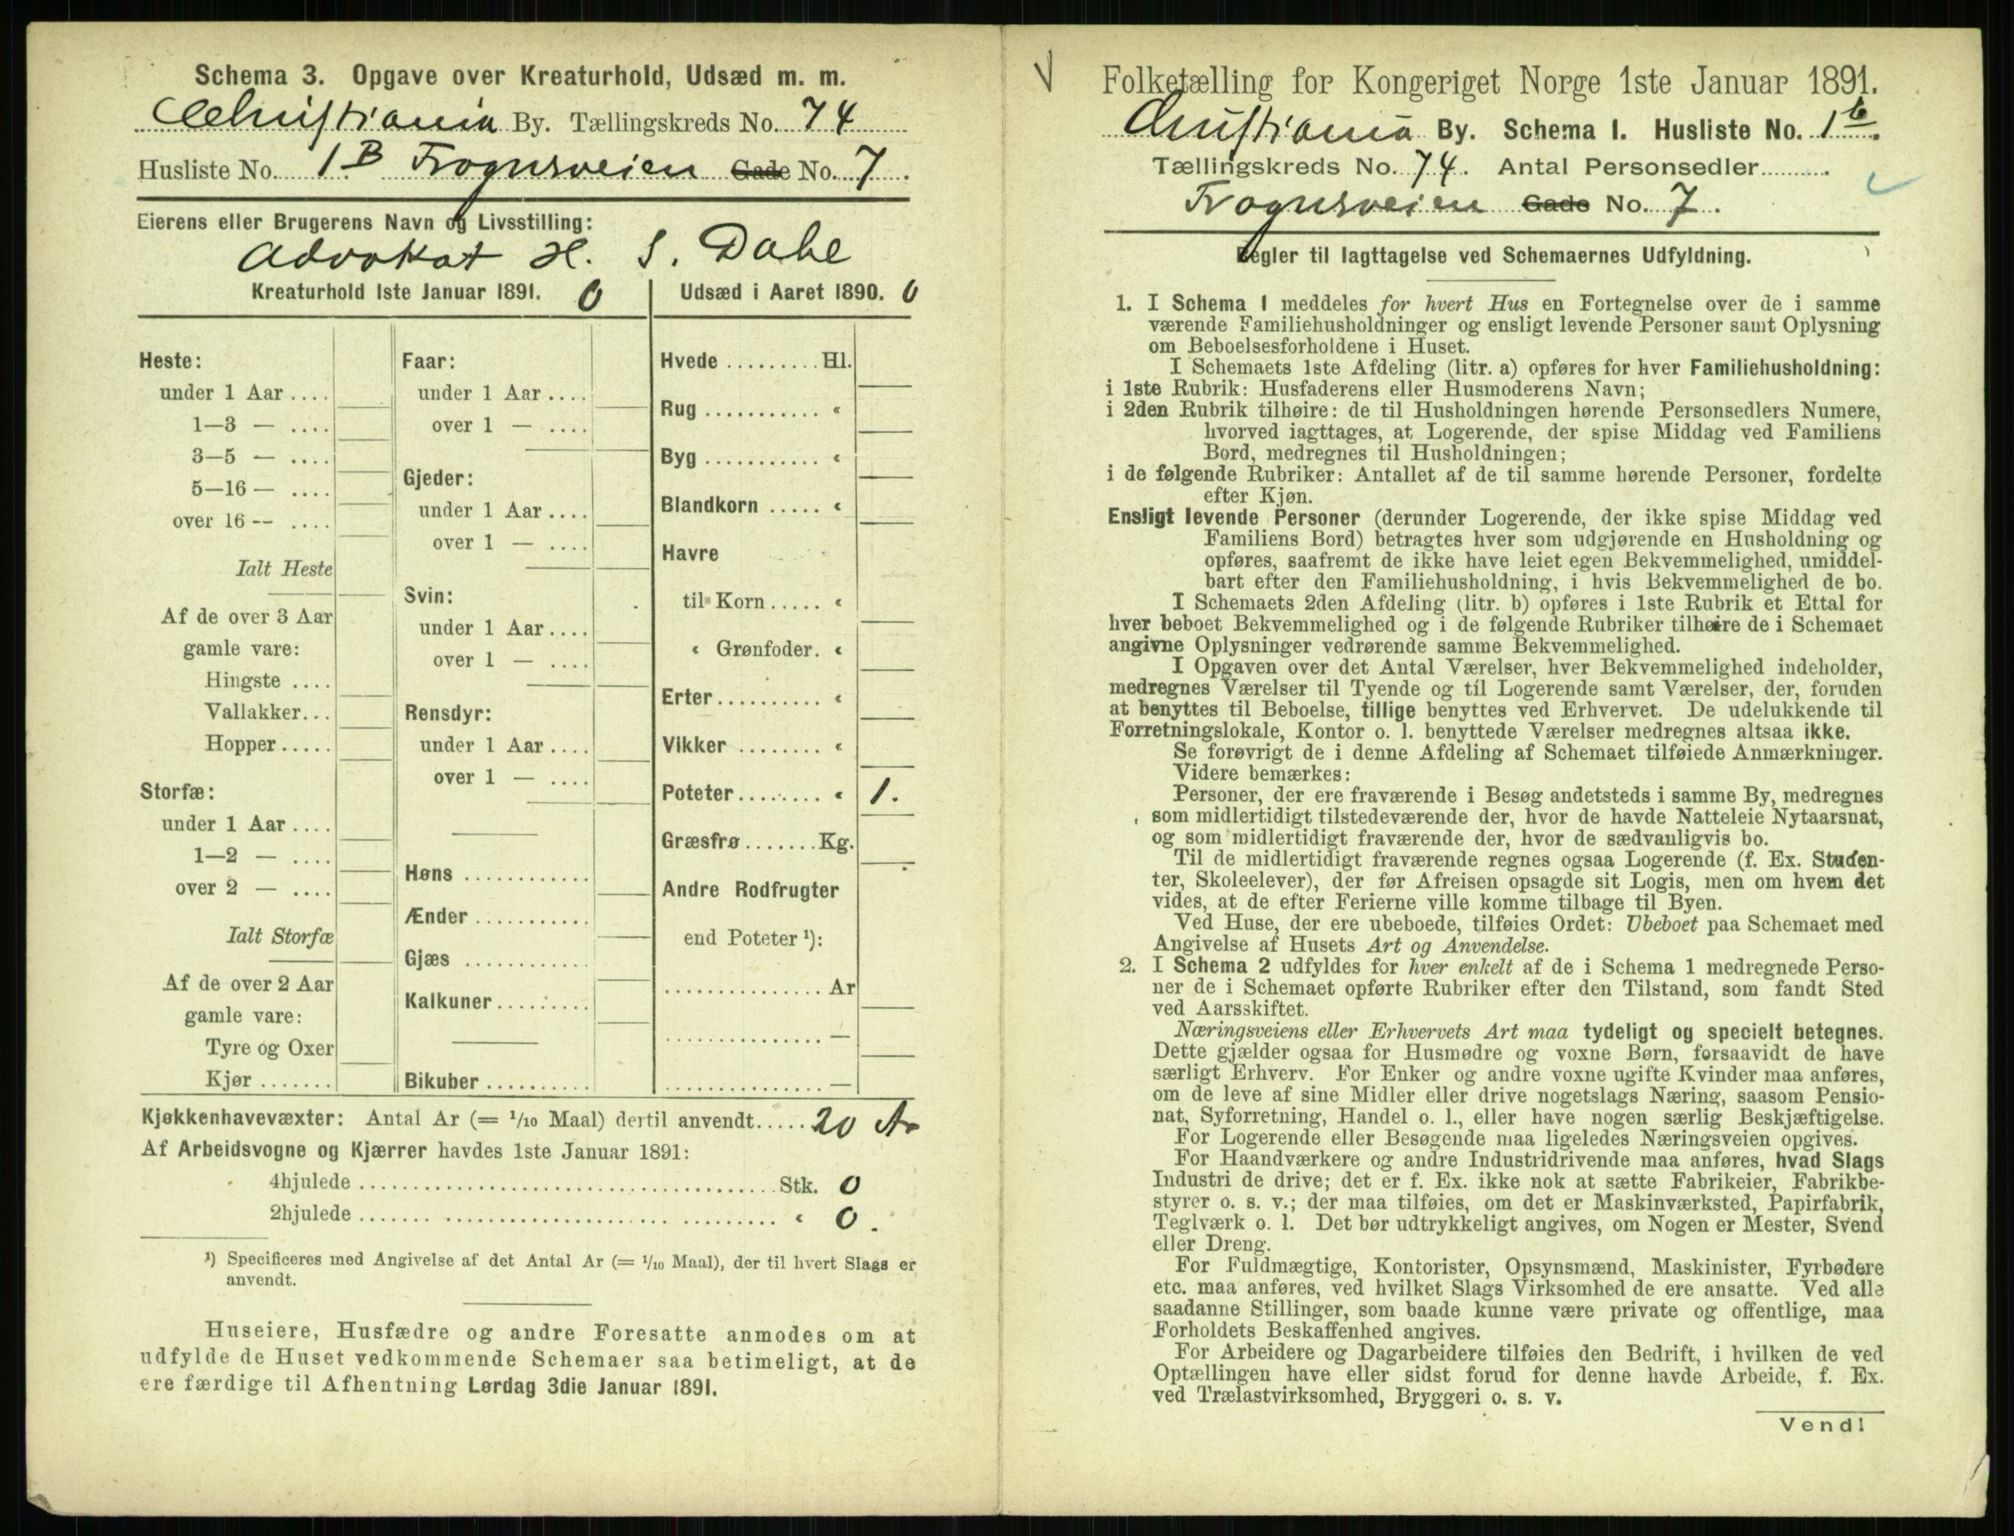 Schema 3. Opgave over Kreaturhold, Udsæd m. m.
Christiania By. Tællingskreds No. 74
Husliste No. 1B Frognsveien Gade No. 7.
Eierens eller Brugerens Navn og Livsstilling:
Advokat H. S. Dahl
Kreaturhold 1ste Januar 1891. 0
Heste:
under 1 Aar ....
1—3 — ....
3—5 — ....
5—16 — ....
over 16 -- ....
Ialt Heste
Af de over 3 Aar
gamle vare:
Hingste ....
Vallakker...
Hopper.....
Storfæ:
under 1 Aar ....
1—2 — ....
over 2 — ....
Ialt Storfæ
Af de over 2 Aar
gamle vare:
Tyre og Oxer
Kjør .......
Faar:
under 1 Aar ....
over 1 — ....
Gjeder:
under 1 Aar ....
over 1 — ....
Svin:
under 1 Aar ....
over 1 — ....
Rensdyr:
under 1 Aar ....
over 1 — ....
Høns ............
Ænder ...........
Gjæs ............
Kalkuner.........
Bikuber ..........
Udsæd i Aaret 1890. 0
Hvede ......... Hl.
Rug ........... «
Byg ........... «
Blandkorn ..... «
Havre
til Korn ..... «
« Grønfoder. «
Erter.......... «
Vikker ........ «
Poteter........ « 1.
Græsfrø.......Kg.
Andre Rodfrugter
end Poteter ¹):
............... Ar
............... —
............... —
Kjøkkenhavevæxter: Antal Ar (= 1/10 Maal) dertil anvendt..... 20 Ar
Af Arbeidsvogne og Kjærrer havdes 1ste Januar 1891:
4hjulede ........................................ Stk. 0
2hjulede ........................................ « 0.
¹) Specificeres med Angivelse af det Antal Ar (= 1/10 Maal), der til hvert Slags er
anvendt.
Huseiere, Husfædre og andre Foresatte anmodes om at
udfylde de Huset vedkommende Schemaer saa betimeligt, at de
ere færdige til Afhentning Lørdag 3die Januar 1891.
Folketælling for Kongeriget Norge 1ste Januar 1891.
Christiania By. Schema 1. Husliste No. 1b.
Tællingskreds No. 74. Antal Personsedler..........
Frognsveien Gade No. 7.
Regler til Iagttagelse ved Schemaernes Udfyldning.
1. I Schema 1 meddeles for hvert Hus en Fortegnelse over de i samme
værende Familiehusholdninger og ensligt levende Personer samt Oplysning
om Beboelsesforholdene i Huset.
I Schemaets 1ste Afdeling (litr. a) opføres for hver Familiehusholdning:
i 1ste Rubrik: Husfaderens eller Husmoderens Navn;
i 2den Rubrik tilhøire: de til Husholdningen hørende Personsedlers Numere,
hvorved iagttages, at Logerende, der spise Middag ved Familiens
Bord, medregnes til Husholdningen;
i de følgende Rubriker: Antallet af de til samme hørende Personer, fordelte
efter Kjøn.
Ensligt levende Personer (derunder Logerende, der ikke spise Middag ved
Familiens Bord) betragtes hver som udgjørende en Husholdning og
opføres, saafremt de ikke have leiet egen Bekvemmelighed, umiddel-
bart efter den Familiehusholdning, i hvis Bekvemmelighed de bo.
I Schemaets 2den Afdeling (litr. b) opføres i 1ste Rubrik et Ettal for
hver beboet Bekvemmelighed og i de følgende Rubriker tilhøire de i Schemaet
angivne Oplysninger vedrørende samme Bekvemmelighed.
I Opgaven over det Antal Værelser, hver Bekvemmelighed indeholder,
medregnes Værelser til Tyende og til Logerende samt Værelser, der, foruden
at benyttes til Beboelse, tillige benyttes ved Erhvervet. De udelukkende til
Forretningslokale, Kontor o. l. benyttede Værelser medregnes altsaa ikke.
Se forøvrigt de i denne Afdeling af Schemaet tilføiede Anmærkninger.
Videre bemærkes:
Personer, der ere fraværende i Besøg andetsteds i samme By, medregnes
som midlertidigt tilstedeværende der, hvor de havde Natteleie Nytaarsnat,
og som midlertidigt fraværende der, hvor de sædvanligvis bo.
Til de midlertidigt fraværende regnes ogsaa Logerende (f. Ex. Studen-
ter, Skoleelever), der før Afreisen opsagde sit Logis, men om hvem det
vides, at de efter Ferierne ville komme tilbage til Byen.
Ved Huse, der ere ubeboede, tilføies Ordet: Ubeboet paa Schemaet med
Angivelse af Husets Art og Anvendelse.
2. I Schema 2 udfyldes for hver enkelt af de i Schema 1 medregnede Perso-
ner de i Schemaet opførte Rubriker efter den Tilstand, som fandt Sted
ved Aarsskiftet.
Næringsveiens eller Erhvervets Art maa tydeligt og specielt betegnes.
Dette gjælder ogsaa for Husmødre og voxne Børn, forsaavidt de have
særligt Erhverv. For Enker og andre voxne ugifte Kvinder maa anføres,
om de leve af sine Midler eller drive nogetslags Næring, saasom Pensio-
nat, Syforretning, Handel o. l., eller have nogen særlig Beskjæftigelse.
For Logerende eller Besøgende maa ligeledes Næringsveien opgives.
For Haandværkere og andre Industridrivende maa anføres, hvad Slags
Industri de drive; det er f. Ex. ikke nok at sætte Fabrikeier, Fabrikbe-
styrer o. s. v.; der maa tilføies, om det er Maskinværksted, Papirfabrik,
Teglværk o. l. Det bør udtrykkeligt angives, om Nogen er Mester, Svend
eller Dreng.
For Fuldmægtige, Kontorister, Opsynsmænd, Maskinister, Fyrbødere
etc. maa anføres, ved hvilket Slags Virksomhed de ere ansatte. Ved alle
saadanne Stillinger, som baade kunne være private og offentlige, maa
Forholdets Beskaffenhed angives.
For Arbeidere og Dagarbeidere tilføies den Bedrift, i hvilken de ved
Optællingen have eller sidst forud for denne havde Arbeide, f. Ex.
ved Trælastvirksomhed, Bryggeri o. s. v.
Vend!